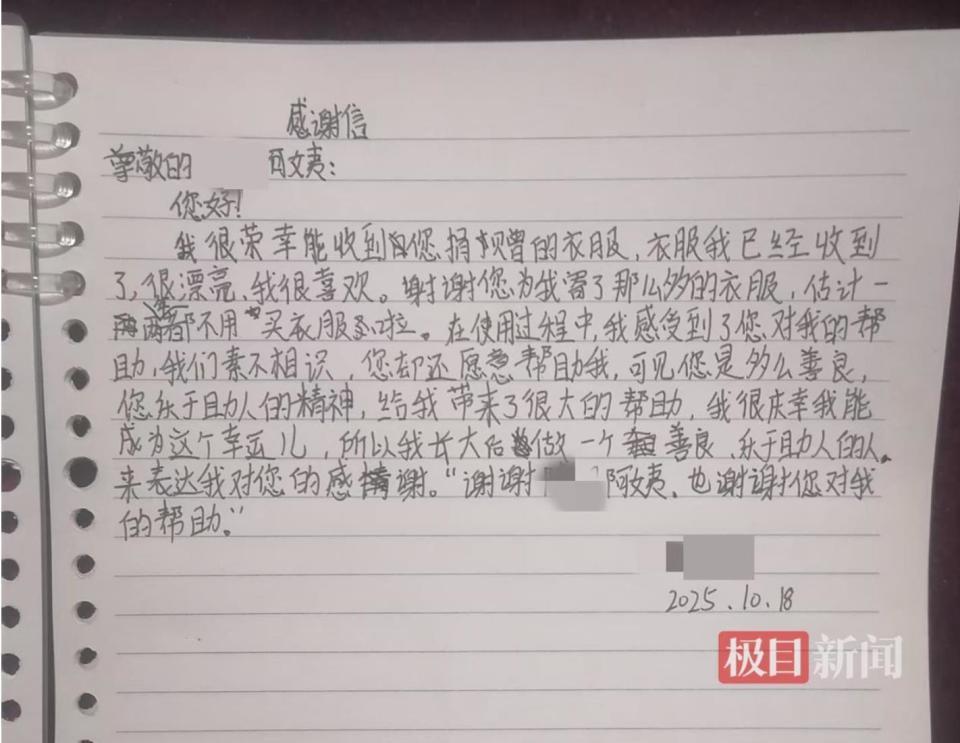 感谢信
尊敬的 阿姨：
您好！
我很荣幸能收到您捐赠的衣服，衣服我已经收到
了，很漂亮，我很喜欢。谢谢您为我寄了那么多的衣服，估计一
两年都不用买衣服啦。在使用过程中，我感受到了您对我的帮
助，我们素不相识，您却还愿意帮助我，可见您是多么善良，
您乐于助人的精神，给我带来了很大的帮助，我很庆幸我能
成为这个幸运儿，所以我长大后做一个善良、乐于助人的人
来表达我对您的感谢。“谢谢 阿姨，也谢谢您对我
的帮助。”
2025.10.18
极目新闻